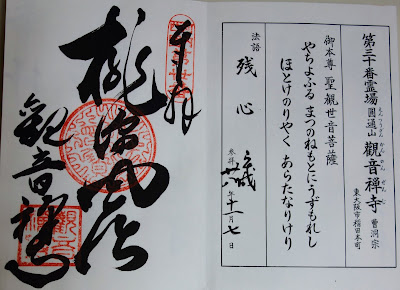 第三十番霊場 圓通山 觀音禪寺 曹洞宗
えんつうざん かんのんぜんじ
東大阪市稲田本町
御本尊 聖觀世音菩薩
やちよふる まつのねもとにうずもれし
ほとけのりやく あらたなりけり
法語 残心
参拝 年十一月七日
奉拝
觀音禅寺